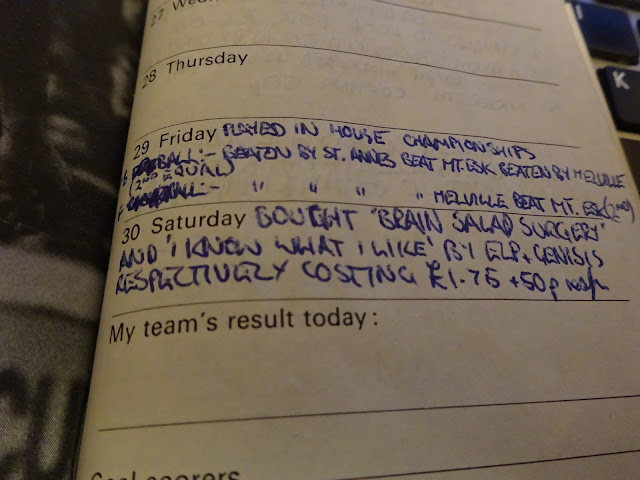 27 Wedn
28 Thursday
29 Friday PLAYED IN HOUSE CHAMPIONSHIPS
:- BEATEN BY ST. ANNES BEAT MT. ESK BEATEN BY MELVILLE
(2ND EQUAL)
:- " " " " MELVILLE BEAT MT. ESK (2ND)
30 Saturday BOUGHT 'BRAIN SALAD SURGERY'
AND 'I KNOW WHAT I LIKE' BY ELP + GENISIS
RESPECTIVELY COSTING £1.75 + 50p
My team's result today:
Goal scorers
K